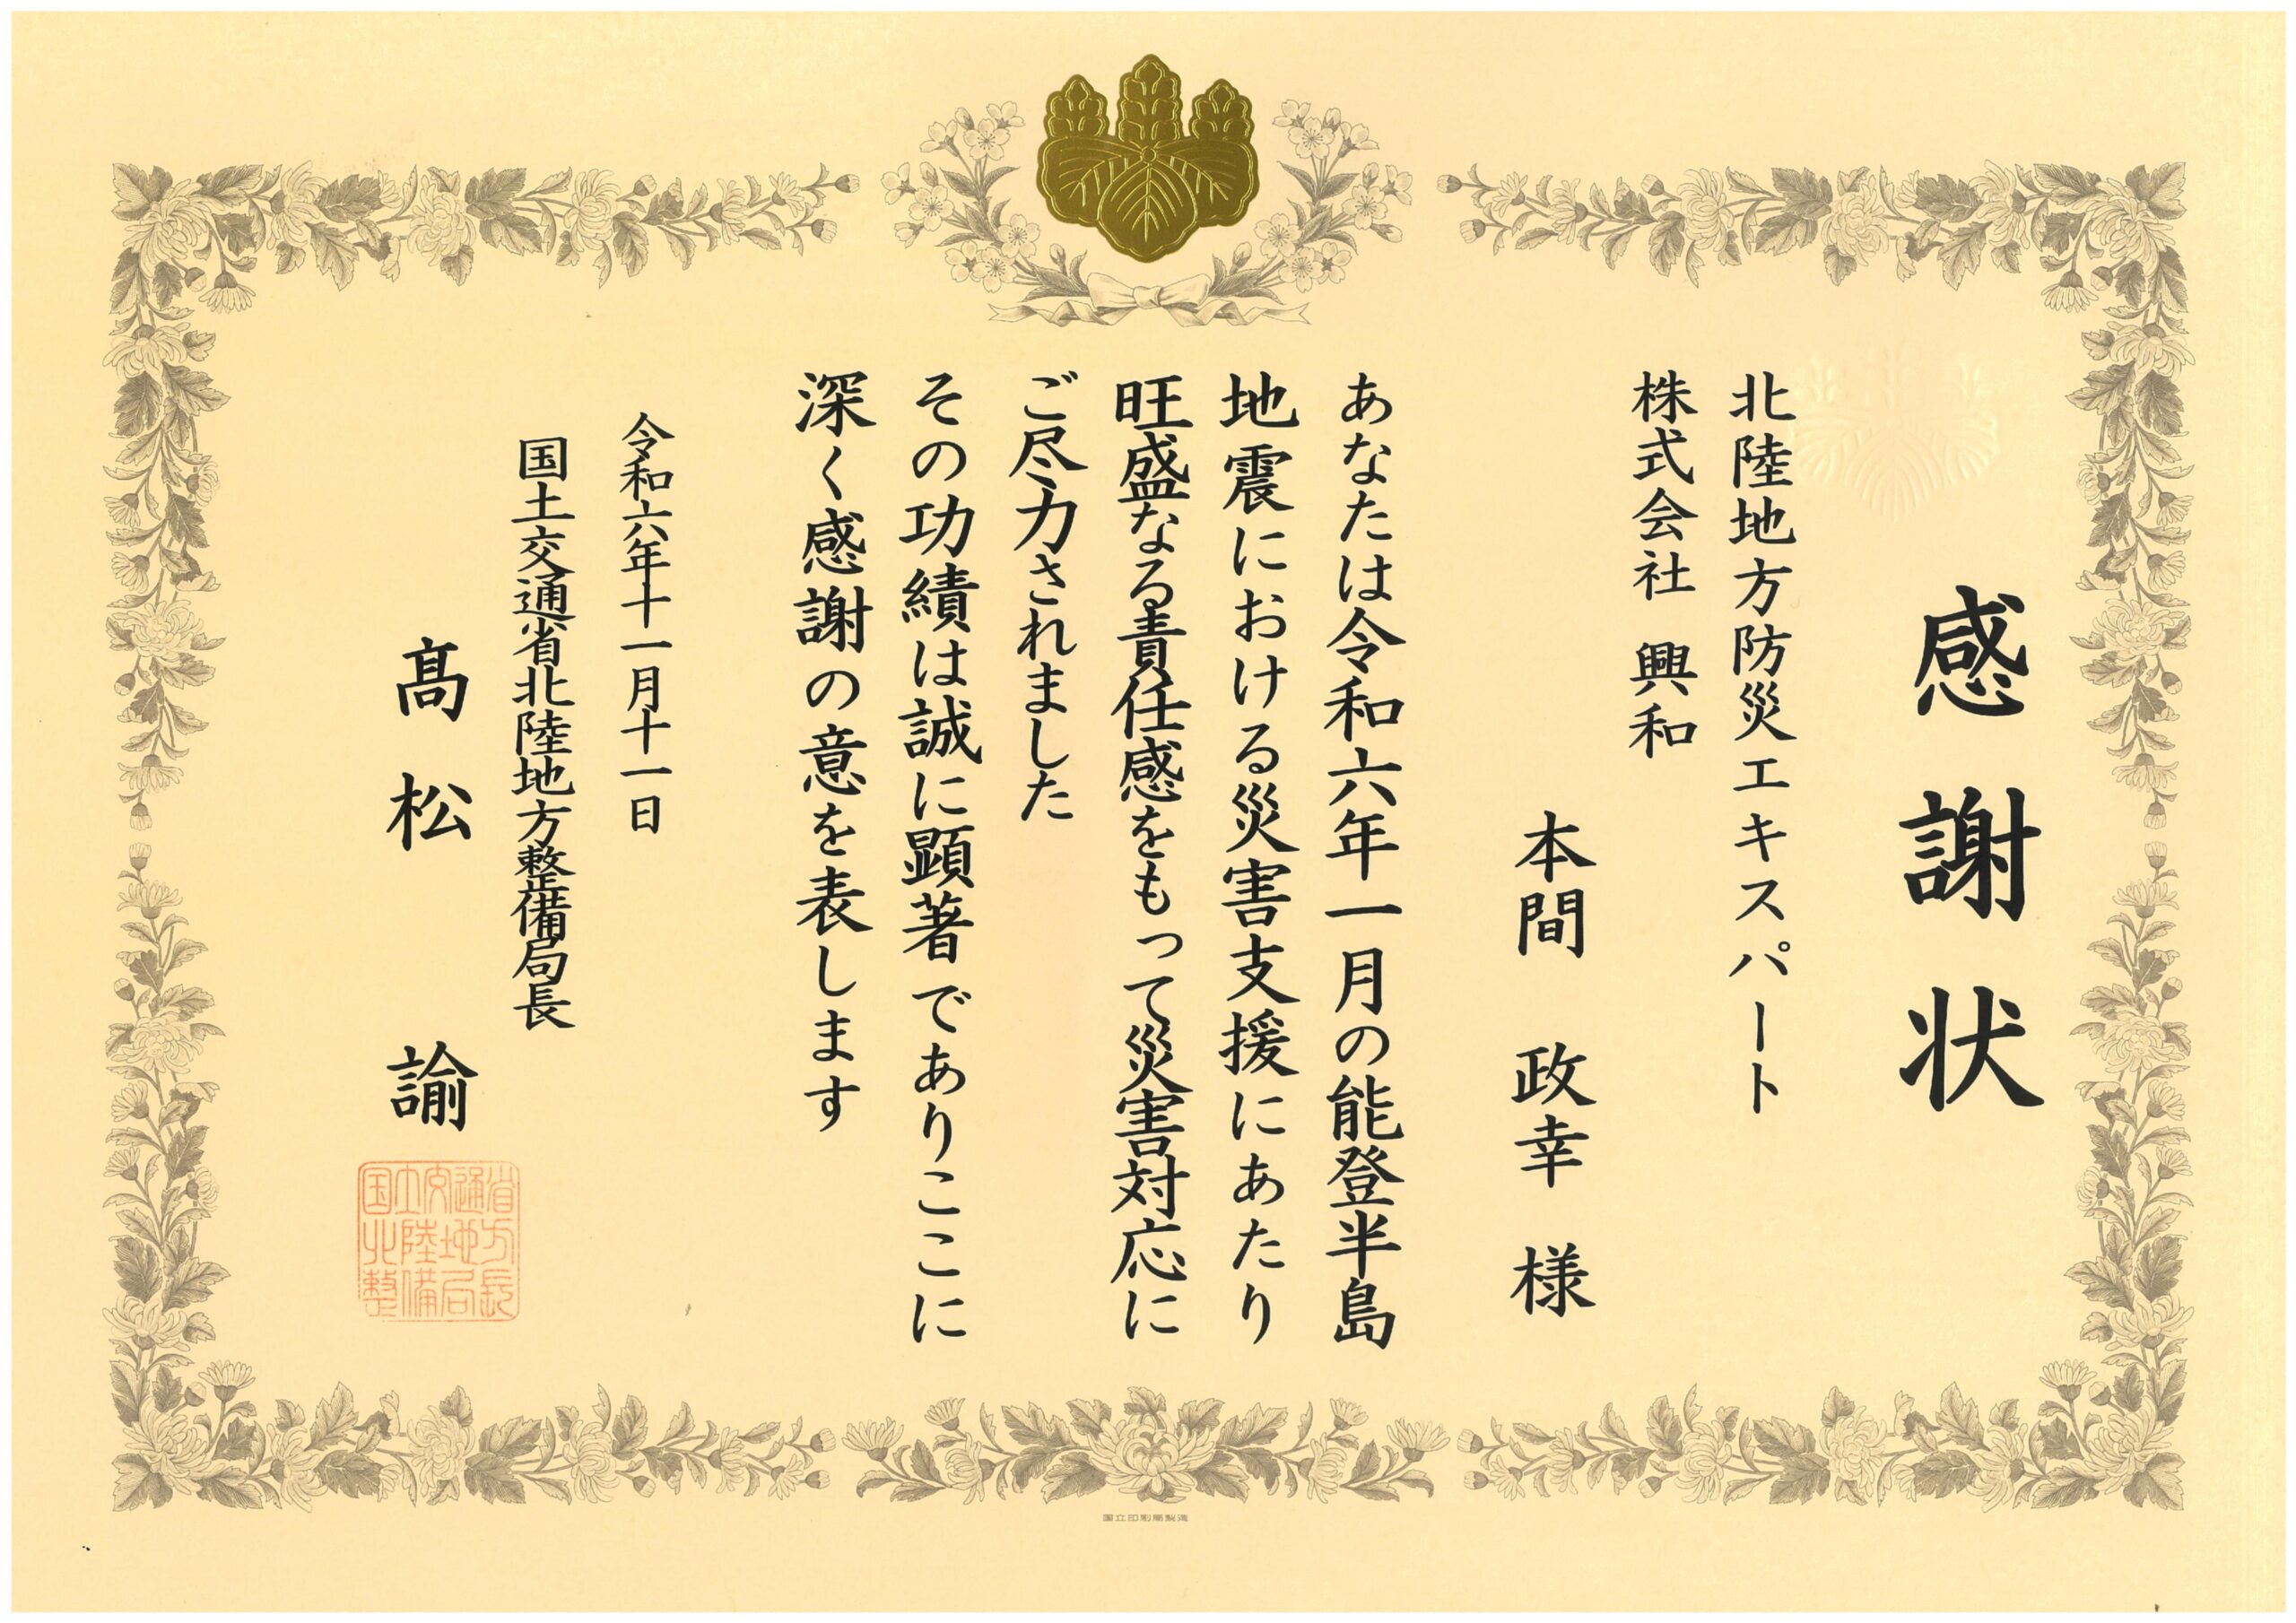 感謝状
北陸地方防災エキスパート
株式会社 興和
本間 政幸 様
あなたは令和六年一月の能登半島
地震における災害支援にあたり
旺盛なる責任感をもって災害対応に
ご尽力されました
その功績は誠に顕著でありここに
深く感謝の意を表します
令和六年十一月十一日
国土交通省北陸地方整備局長
髙松 諭
国土交通省
北陸地方
整備局長
国立印刷局製造